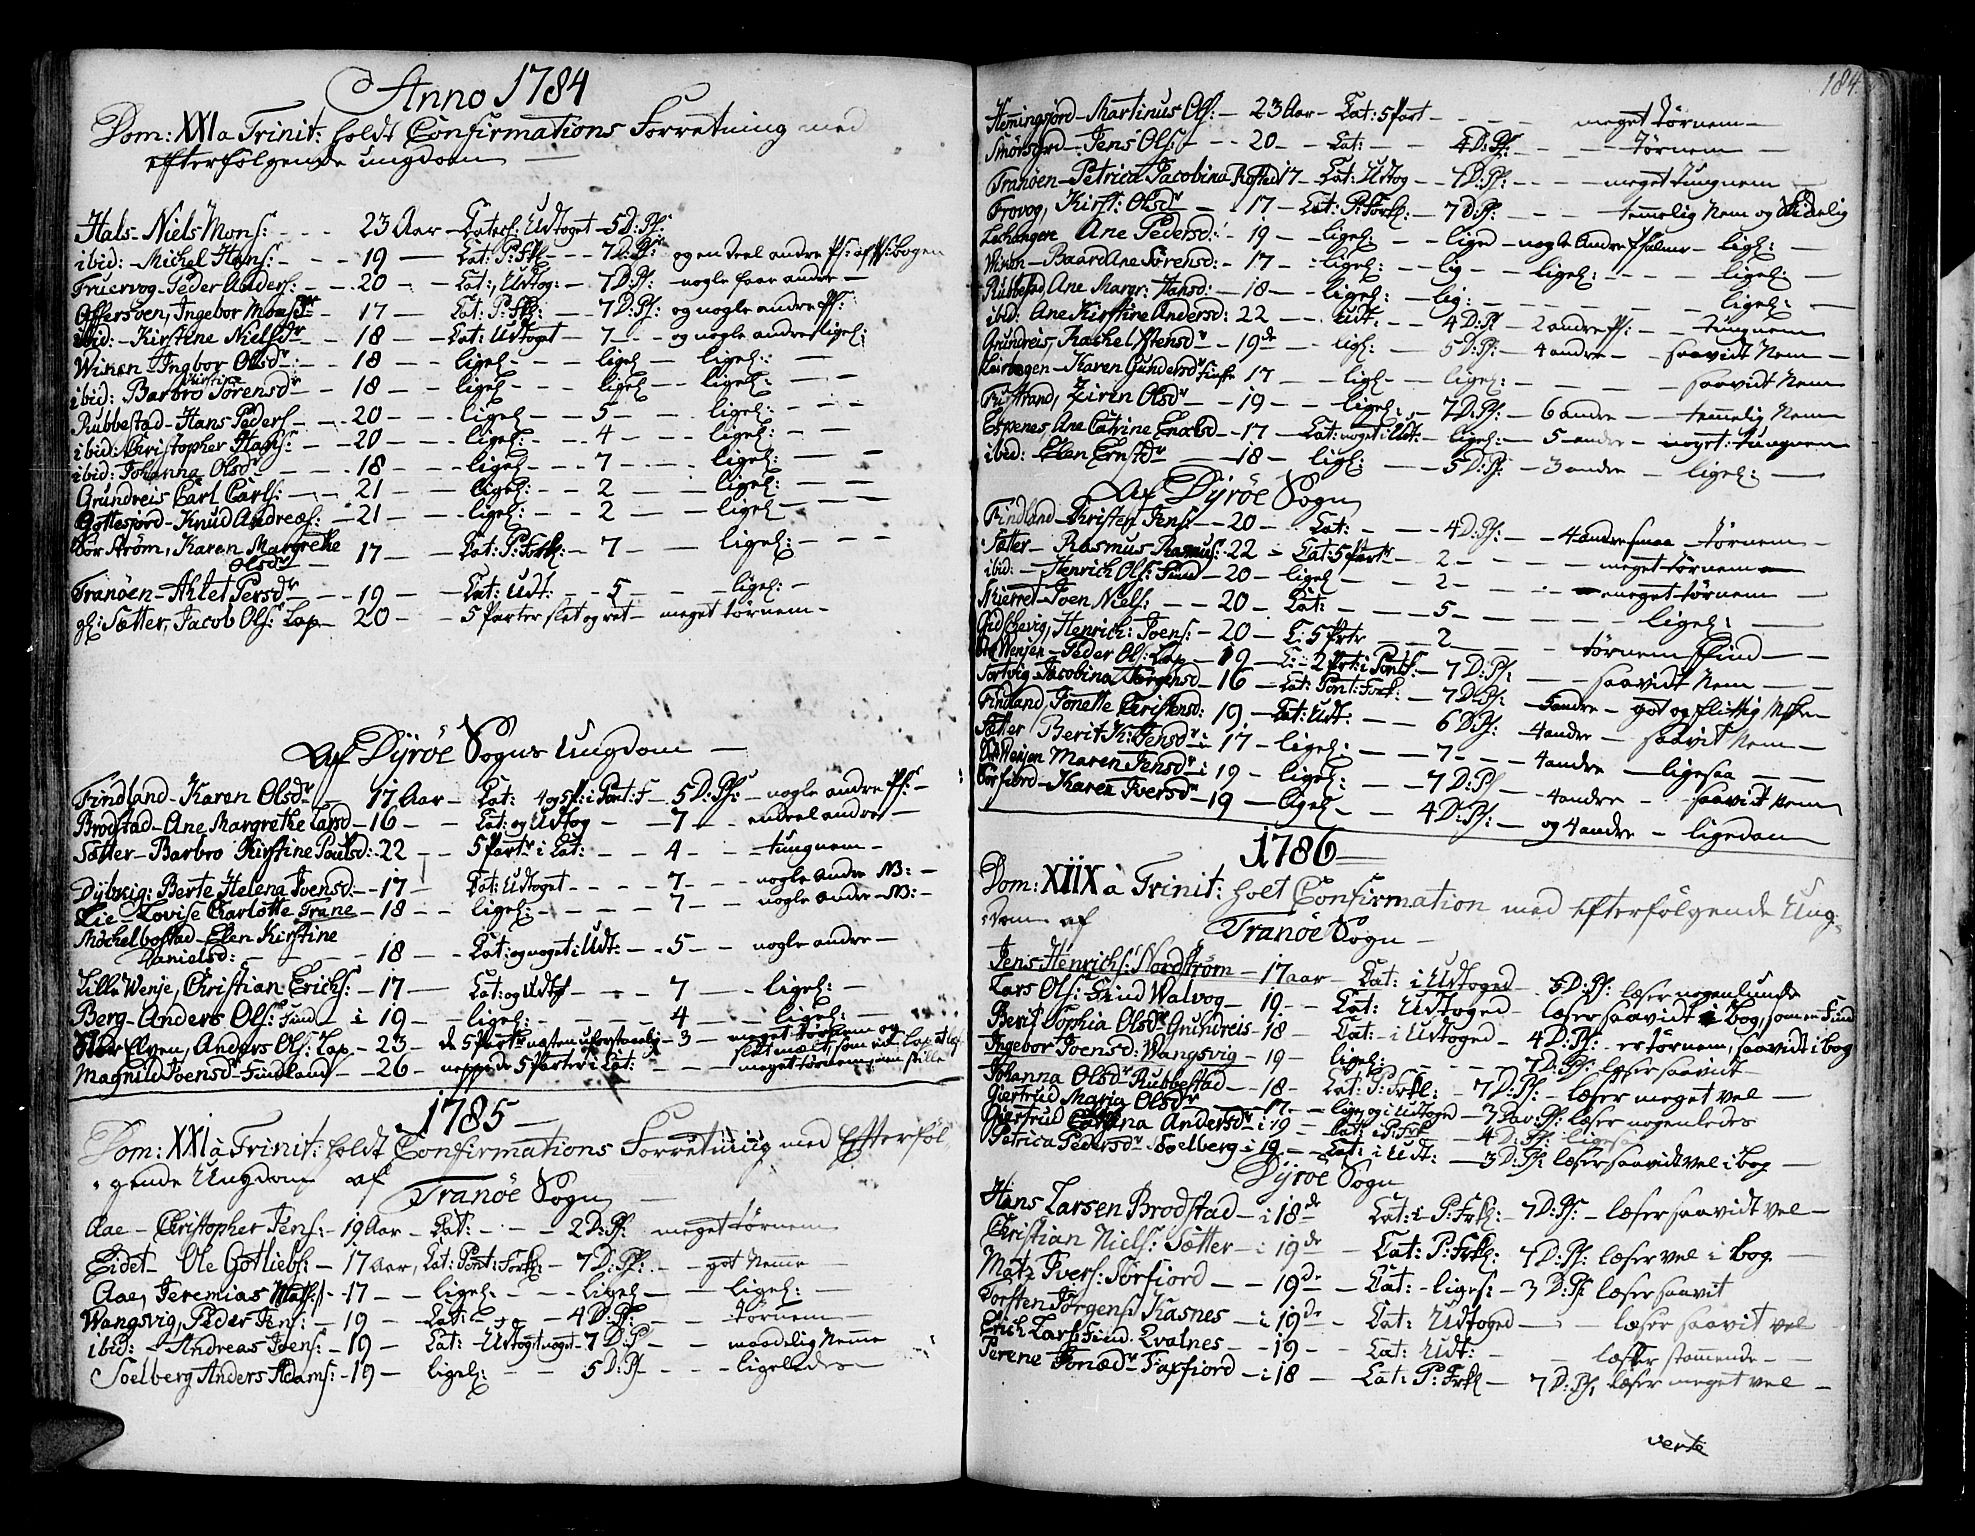 Anno 1784
Dom: XXI a Trinit: holdt Confirmations Forretning med
efterfølgende ungdom —
Hals - Niels Mons: - - - 23 Aar - Catech: Udtoget - 5 D: Ps:
ibid: - Michel Hans: - - - 19 — Cat: P: Frkl - - - 7 D: Ps: og en deel andre Ps: af Ps: bogen
Peder Anders: - - 20 - Cat: Udtog: - 7 D: Ps: - nogle faar andre —
Offersøen, Ingebor Monsdr - 17 — Cat: P: Frkl: - 7 D: Ps: og nogle andre Ps:
ibid: - Kirstine Nielsdr - 18 — Cat: Udtoget - 7 - - og nogle andre ligel:
Wiken Ingbor Olsdr: - - 18 — ligel - - - ligel — ligel: — —
ibid: Barbro Kirstine Sørensdr - 18 — ligel - - - ligel — ligel: — —
Rubbestad - Hans Peders - - 20 — ligel - - 5 - - - ligel: — —
ibid: Christopher Hans: - - - 20 — ligel: - - 4 - - ligel: — —
ibid: Johanna Olsdr - - - 18 — ligel - - 7 - - - ligel: — —
Grundreis Carl Carls: - - - 21 — ligel: - - 2 — — ligel: — —
Gottesjord - Knud Andreas: - 21 — ligel: - - 2 — — ligel — —
Sør Strøm, Karen Margrethe
Olsdr — 17 — - Cat: P: Frkl: - 7 — — ligel: — —
Tranøen - Ahlet Persdr - - 19 — Cat: Udt: - - 5 — — ligel: —
gl: Sætter, Jacob Ols: Lap - 20 — - 5 Parter slet og ret - meget tørnem —
Af Dyrøe Sogns Ungdom —
Findland - Karen Olsdr - 17 Aar - Cat: 4 og 5 P: i Pont: F - 5 D: Ps: - nogle andre Ps: —
Brodstad - Ane Margrethe Larsd - 16 — - Cat: og Udtog - - 7 - - endeel andre —
Sætter - Barbro Kirstine Poulsd: 22 - - 5 Partr i Cat: - - 4 - - tungnem —
Dybvig: Berte Helena Joensd: - 17 — Cat: Udtoget - - - - 7 - - nogle andre NB: —
Lie - Lovise Charlotte Trane - 18 — - ligel: - - - - 7 - - nogle andre NB: —
Mochelbostad - Elen Kirstine
Danielsd: - - - - 18 — Cat: og noget i Udt: - - 5 — nogle andre —
Lille Wenje, Christian Erichs: - 17 — Cat: og Udtog - - - 7 — ligel: —
Berg - Anders Ols: Find - i 19 — - ligel: - - - - 4 — - ligel: —
Elven, Anders Ols: Lap - 23 — de 5 Partr næsten uforstaaelig - 3 — meget tørnem og
slet malt, som en Lap
Magnild Joensd - Findland - - 26 - neppe de 5 Parter i Cat: — — meget tørnem, men stille
1785 —
Dom: XXI a Trinit: holdt Confirmations Forretning med Efterføl
gende Ungdom af
Tranøe Sogn —
Aae - Christopher Jens: - 19 Aar - Cat: - - - 2 D: Ps: meget tørnem
Eidet - Ole Gotliebs: - 17 aar, Cat: Pont: Forkl: - 7 D: Ps: - - got Nemme —
Aae, Jeremias Math: - 17 — ligel: - - - ligel — - ligel: —
Wangsvig, Peder Jens: - 19 — Cat: - - - 4 D: Ps: — - tørnem —
ibid: - Andreas Joens: - 19 — Cat: - Udtoget noget - 7 D: P — - maadelig Neme
Soelberg Anders Adams: - 19 — ligel: - - 5 D: Ps - - ligeledes —
184
Hemingsjord - Martinus Ols: - 23 Aar - Cat: 5 Part - - - - meget tørnem —
Smørsgrd - Jens Ols: - - - 20 — Cat: — — 4 D: Ps: - - - tørnem —
Tranøen - Petrica Jacobina Kofted 17 - Cat: Udtog - - 7 D: Ps: - - - - meget tungnem
Frovog, Kirst: Olsdr - - 17 - Cat: P: Forkl: - 7 D: Ps: - - - temmelig Nem og skikkelig
Ane Pedersd: - 19 — ligel: — — liged - nogle Andre Psalmer - ligl: —
Wiken - Baard Ane Sørensd: - 17 - - ligel: - - lig — - ligel: - - - ligel: —
Rubbestad Ane Margr: Hansd: - 18 — ligel: - - lig: - - - - ligel: —
ibid: Ane Kirstine Andersd: 22 - - Udt: - - 4 D: Ps - 2 andre Ps: - tungnem
Grundreis, Rachel Stensdr - 19de - ligl: — 5 D: Ps: - 4 andre - - saavidt Nem —
Leirbogen - Karen Gundersdr Finske 17 - ligl - - ligel: - - - - saavidt Nem
Tistrand, Ziren Olsdr - - 19 — - ligel: - 7 D: Ps: - 6 andre - - temelig Nem
Espenes, Ane Catrine Enoksd - 17 - Cat: noget i Udt: - ligel: - 5 andre - noget tungnem
ibid: Elen Ernstdr - - 18 - ligl: — — 5 D: Ps: - 3 andre - ligel: —
Af Dyrøe Sogn
Findland - Christen Jens: - - 20 — Cat: - — 4 D: Ps: - - 4 andre smaa - tørnem —
Sætter - Rasmus Ramus: 22 - Cat: 5 Partr - 2 - - - - meget tørnem —
ibid: - Henrich Ols: Find - 20 - ligel - - - 2 - - - - meget tørnem —
Joen Niels: - - 20 — Cat: — - — 5 - - - - - ligel: —
Henrich: Joens: - 20 - C: 5 Prtr - - 2 — - - tørnem Find —
Wenjen - Peder Ols: Lap - 19 - C: - 2 Prt: i Pontf: - 7 D: Ps: - - - saavidt Nem - -
Jacobina Jørgensd - 16 - Cat: Pont: Frkl: - 7 D: Ps: - 5 andre - got og flittig
Findland, Jonette Christensd: 19 - Cat: Udt: - - 6 D: Ps: - 4 andre - saavit Nem —
Sætter Berit K: Jensdr i 17 - ligel: — — 7 - - 4 andre — ligesaa — —
Wenjen Maren Jensdr i 19 - ligel: — - 7 D: Ps — 4 andre - - saavidt Nem
Sørfiord - Karen Iversdr - 19 — ligel - - 4 D: Ps: - og 4 andre - ligedan
1786 —
Dom: XIIX a Trinit: holt Confirmation med efterfølgende Ung-
dom af
Tranøe Sogn —
Jens Henrichs: Nordstrøm - 17 aar - Cat: i Udtoged - 5 D: Ps: læser nogenlunde
Lars Ols: Find Walvog - 19 - Cat: Udtoged - læser saavidt i bog, som en Find
Berit Sophia Olsdr Grundreis - 18 - Cat: - i Udtoged - 4 D: Ps: - er tørnem, saavidt i bog
Ingebor Joensd: Wangsvig - 19 — ligel: - - - 7 D: Ps: læser saavidt
Johanna Olsdr Rubbestad - - 18 - Cat: P: Frkl: - 7 D: Ps: - læser meget vel —
Giertrud Maria Olsdr — 17 - - lige, og i Udtoged - 3 Dav: Ps: læser nogenledes
Giertrud Andersdr i 19 - Cat: i P: Frk - 4 D: Ps: - ligesaa
Petrica Pedersdr Soelberg i 19 — Cat: i Udt: — 3 D: Ps: læser saavidt vel i bog —
Dyrøe Sogn
Hans Larsen Brodstad - i 18de Cat: i P: Frkl: - 7 D: Ps: - læser saavidt vel —
Christian Niels: Sætter - i 19de — Cat: P: Frkl: 7 D: Ps: læser vel i bog
Matz Ivers: Sørfiord — - 19de — Cat: - liges: - 3 D: Ps: læser saavit
Torsten Jørgens: Kasnes - i 19de — Cat: Udtoged — - læser saavit vel
Erich Lars: Find. Qvalnes - 19 — Cat: Udt: - - - læser stammende —
Perene Jonædr - Faxfiord - i 18 — Cat: P: Frkl — 7 D: Ps: læser meget vel —
verte